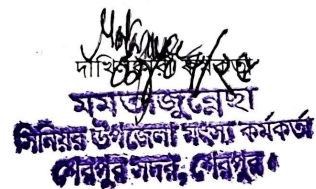 দাখিলকারী কর্মকর্তা
মমতাজুন্নেছা
সিনিয়র উপজেলা মৎস্য কর্মকর্তা
শেরপুর সদর, শেরপুর।